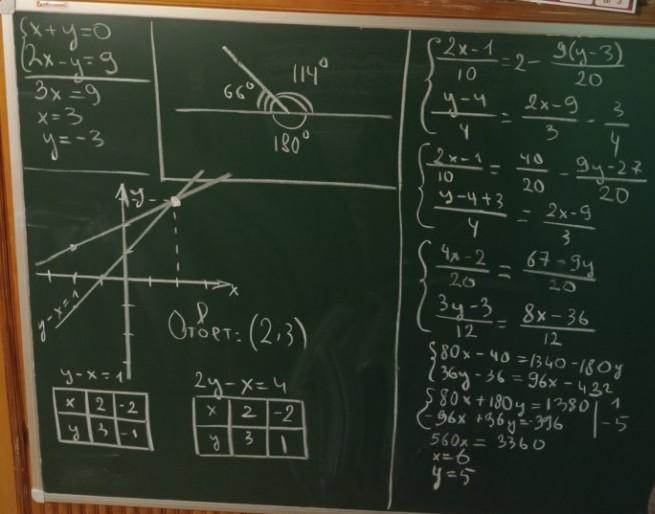 {x+y=0
{2x-y=9
3x=9
x=3
y=-3
66°
114°
180°
y
x
y-x=1
(2,3)
y-x=1
x 2 -2
y 3 -1
2y-x=4
x 2 -2
y 3 1
{(2x-1)/10 = 2 - 9(y-3)/20
{(y-4)/4 = (2x-9)/3 - 3/4
{(2x-1)/10 = 40/20 - (9y-27)/20
{(y-4+3)/4 = (2x-9)/3
{(4x-2)/20 = (67-9y)/20
{(3y-3)/12 = (8x-36)/12
{80x-40=1340-180y
{36y-36=96x-432
{80x+180y=1380 | 1
{-96x+36y=-396 | -5
560x=3360
x=6
y=5